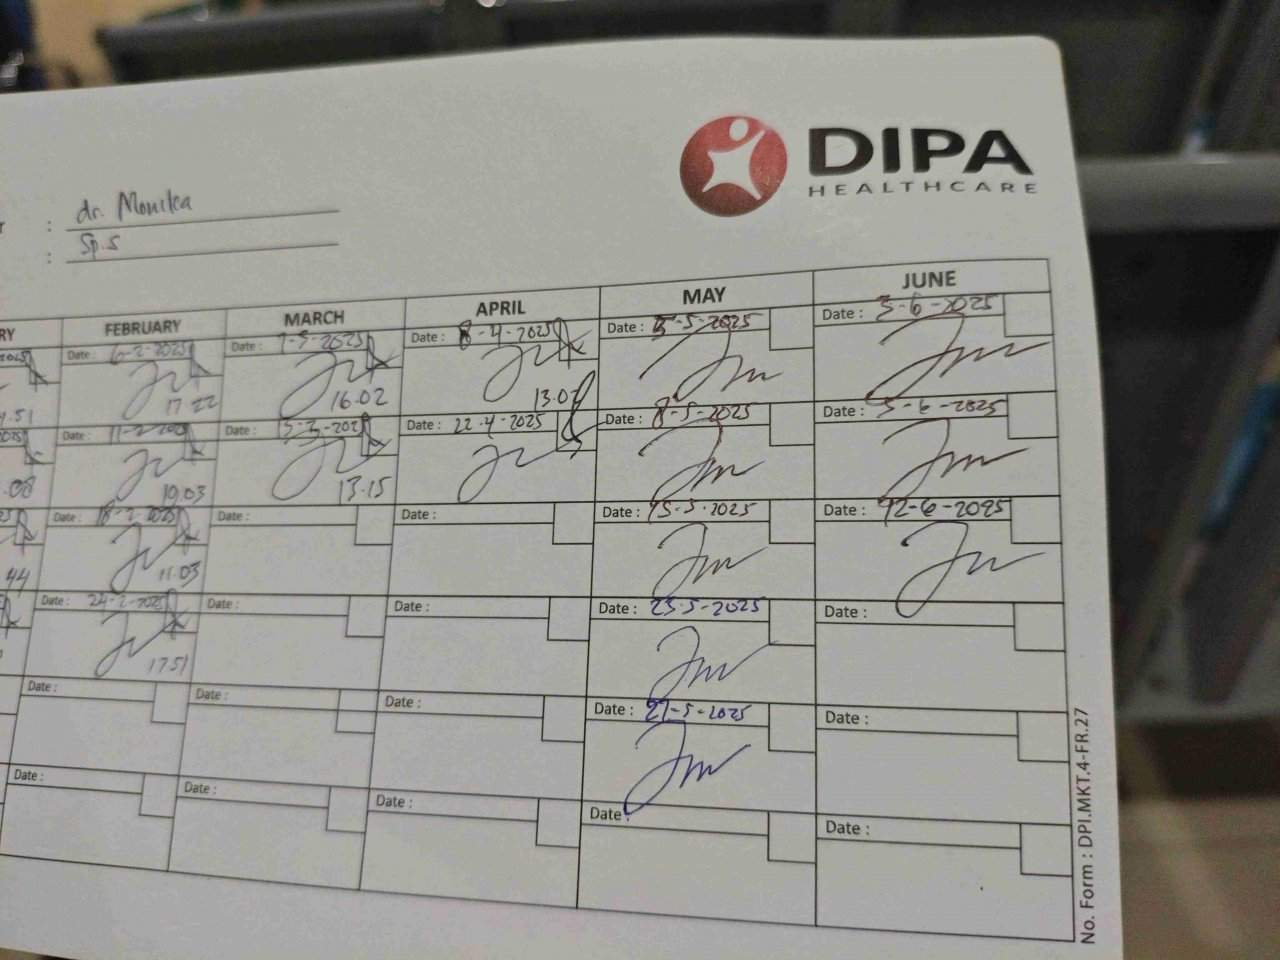 DIPA
HEALTHCARE
: dr. Monika
: Sp.S
FEBRUARY MARCH APRIL MAY JUNE
Date : 6-2-2025 Date : Date : 8-4-2025 Date : 5-5-2025 Date : 3-6-2025
17.22 16.02 13.02
Date : Date : Date : 22.4-2025 Date : 8-5-2025 Date : 5-6-2025
19.03 13.15
Date : 18-2-2025 Date : Date : Date : 15-5-2025 Date : 12-6-2025
44 11.03
Date : 24-2-2025 Date : Date : Date : 23-5-2025 Date :
17.51
Date : Date : Date : Date : 27-5-2025 Date :
Date : Date : Date : Date : Date :
No. Form : DPI.MKT.4-FR.27